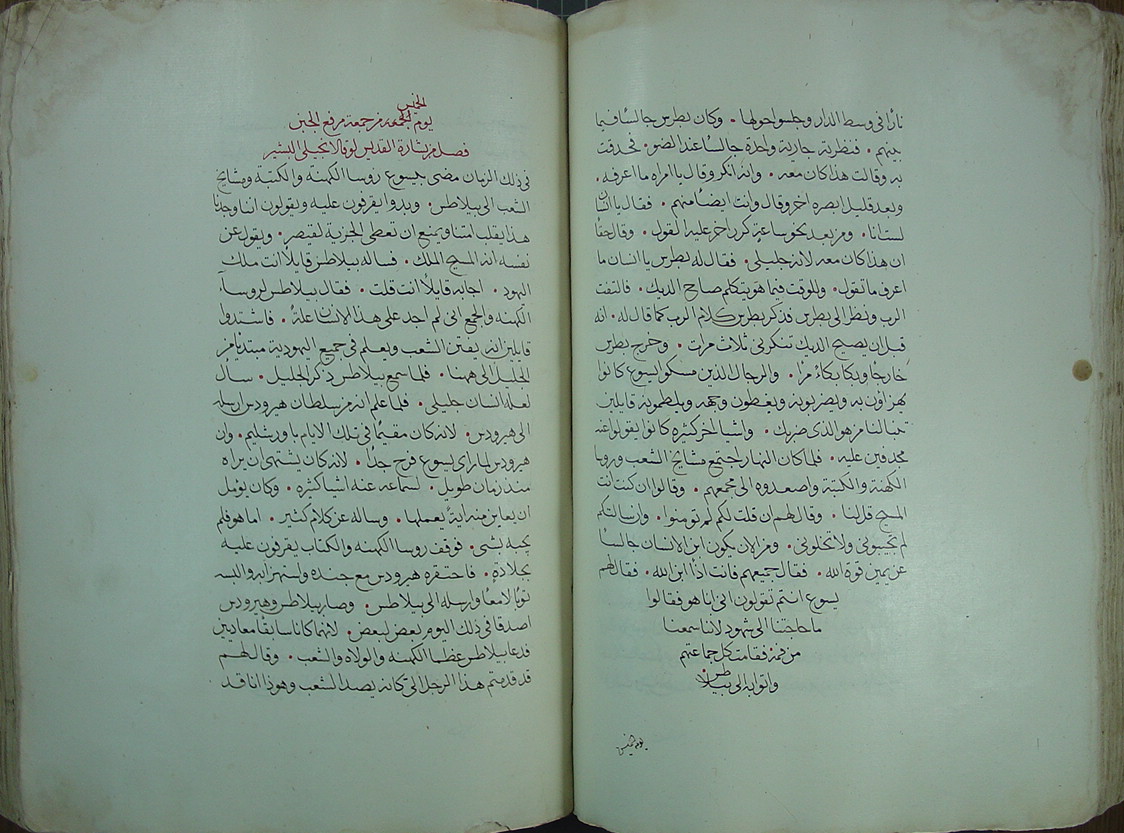 نارًا في وسط الدار وجلسوا حولها • وكان بطرس جالسًا فيما
بينهم • فنظرته جارية واحدة جالسًا عند الضو • فحدقت
به وقالت هذا كان معه • وانه انكر وقال يا امراه ما اعرفه •
وبعد قليل ابصره اخر وقال وانت ايضًا منهم • فقال يا انسان
لست انا • ومن بعد نحو ساعةٍ كرر اخر عليه القول • وقال حقًا
ان هذا كان معه لانه جليلي • فقال له بطرس يا انسان ما
اعرف ما تقول • وللوقت فيما هو يتكلم صاح الديك • فالتفت
الرب ونظر الى بطرس فذكر بطرس كلام الرب كما قال له • انه
قبل ان يصيح الديك تنكرني ثلاث مرات • وخرج بطرس
خارجًا وبكا بكاءً مرًا • والرجال الذين مسكوا يسوع كانوا
يهزاون به ويضربونه ويغطون وجهه ويلطمونه قايلين
تنبا لنا من هو الذي ضربك • واشيا اخر كثيره كانوا يقولوا عنه
مجدفين عليه • فلما كان النهار اجتمع مشايخ الشعب وروسا
الكهنة والكتبة واصعدوه الى مجمعهم • وقالوا ان كنت انت
المسيح قل لنا • وقال لهم ان قلت لكم لم تومنوا • وان سالتكم
لم تجيبوني ولا تخلوني • ومن الان يكون ابن الانسان جالسًا
عن يمين قوة الله • فقال جميعهم فانت اذًا ابن الله • فقال لهم
يسوع انتم تقولون اني انا هو فقالوا
ما حاجتنا الى شهود لاننا سمعنا
من فمه فقامت كل جماعتهم
واتوا به الى بيلاطس
يوم الخميس
الخميس
يوم الجمعه من جمعة مرفع الجبن
فصل من بشارة القديس لوقا الانجيلي البشير
في ذلك الزمان مضى بيسوع روسا الكهنه والكتبة ومشايخ
الشعب الى بيلاطس • وبدوا يقرفون عليه ويقولون اننا وجدنا
هذا يقلب امتنا ويمنع ان تعطى الجزية لقيصر • ويقول عن
نفسه انه المسيح الملك • فساله بيلاطس قايلًا انت ملك
اليهود • اجابه قايلًا انت قلت • فقال بيلاطس لروسآ
الكهنه والجمع اني لم اجد على هذا الانسان علةً • فاشتدوا
قايلين انه يفتن الشعب ويعلم في جميع اليهودية مبتدئًا من
الجليل الى ههنا • فلما سمع بيلاطس ذكر الجليل • سال
لعله انسان جليلي • فلما علم انه من سلطان هيرودس ارسله
الى هيرودس • لانه كان مقيمًا في تلك الايام باورشليم • وان
هيرودس لما راى يسوع فرح جدًا • لانه كان يشتهي ان يراه
منذ زمان طويل • لسماعه عنه اشيا كثيره • وكان يومل
ان يعاين منه ايةً يعملها • وساله عن كلام كثير • اما هو فلم
يجبه بشي • فوقف روسا الكهنه والكتاب يقرفون عليه
بجلادةٍ • فاحتقره هيرودس مع جنده واستهزا به والبسه
ثوبًا لامعًا وارسله الى بيلاطس • وصار بيلاطس وهيرودس
اصدقا في ذلك اليوم بعض لبعض • لانهما كانا سابقًا معاديين
فدعا بيلاطس عظما الكهنه والولاه والشعب • وقال لهم
قد قدمتم هذا الرجل الي كانه يصد الشعب وهوذا انا قد